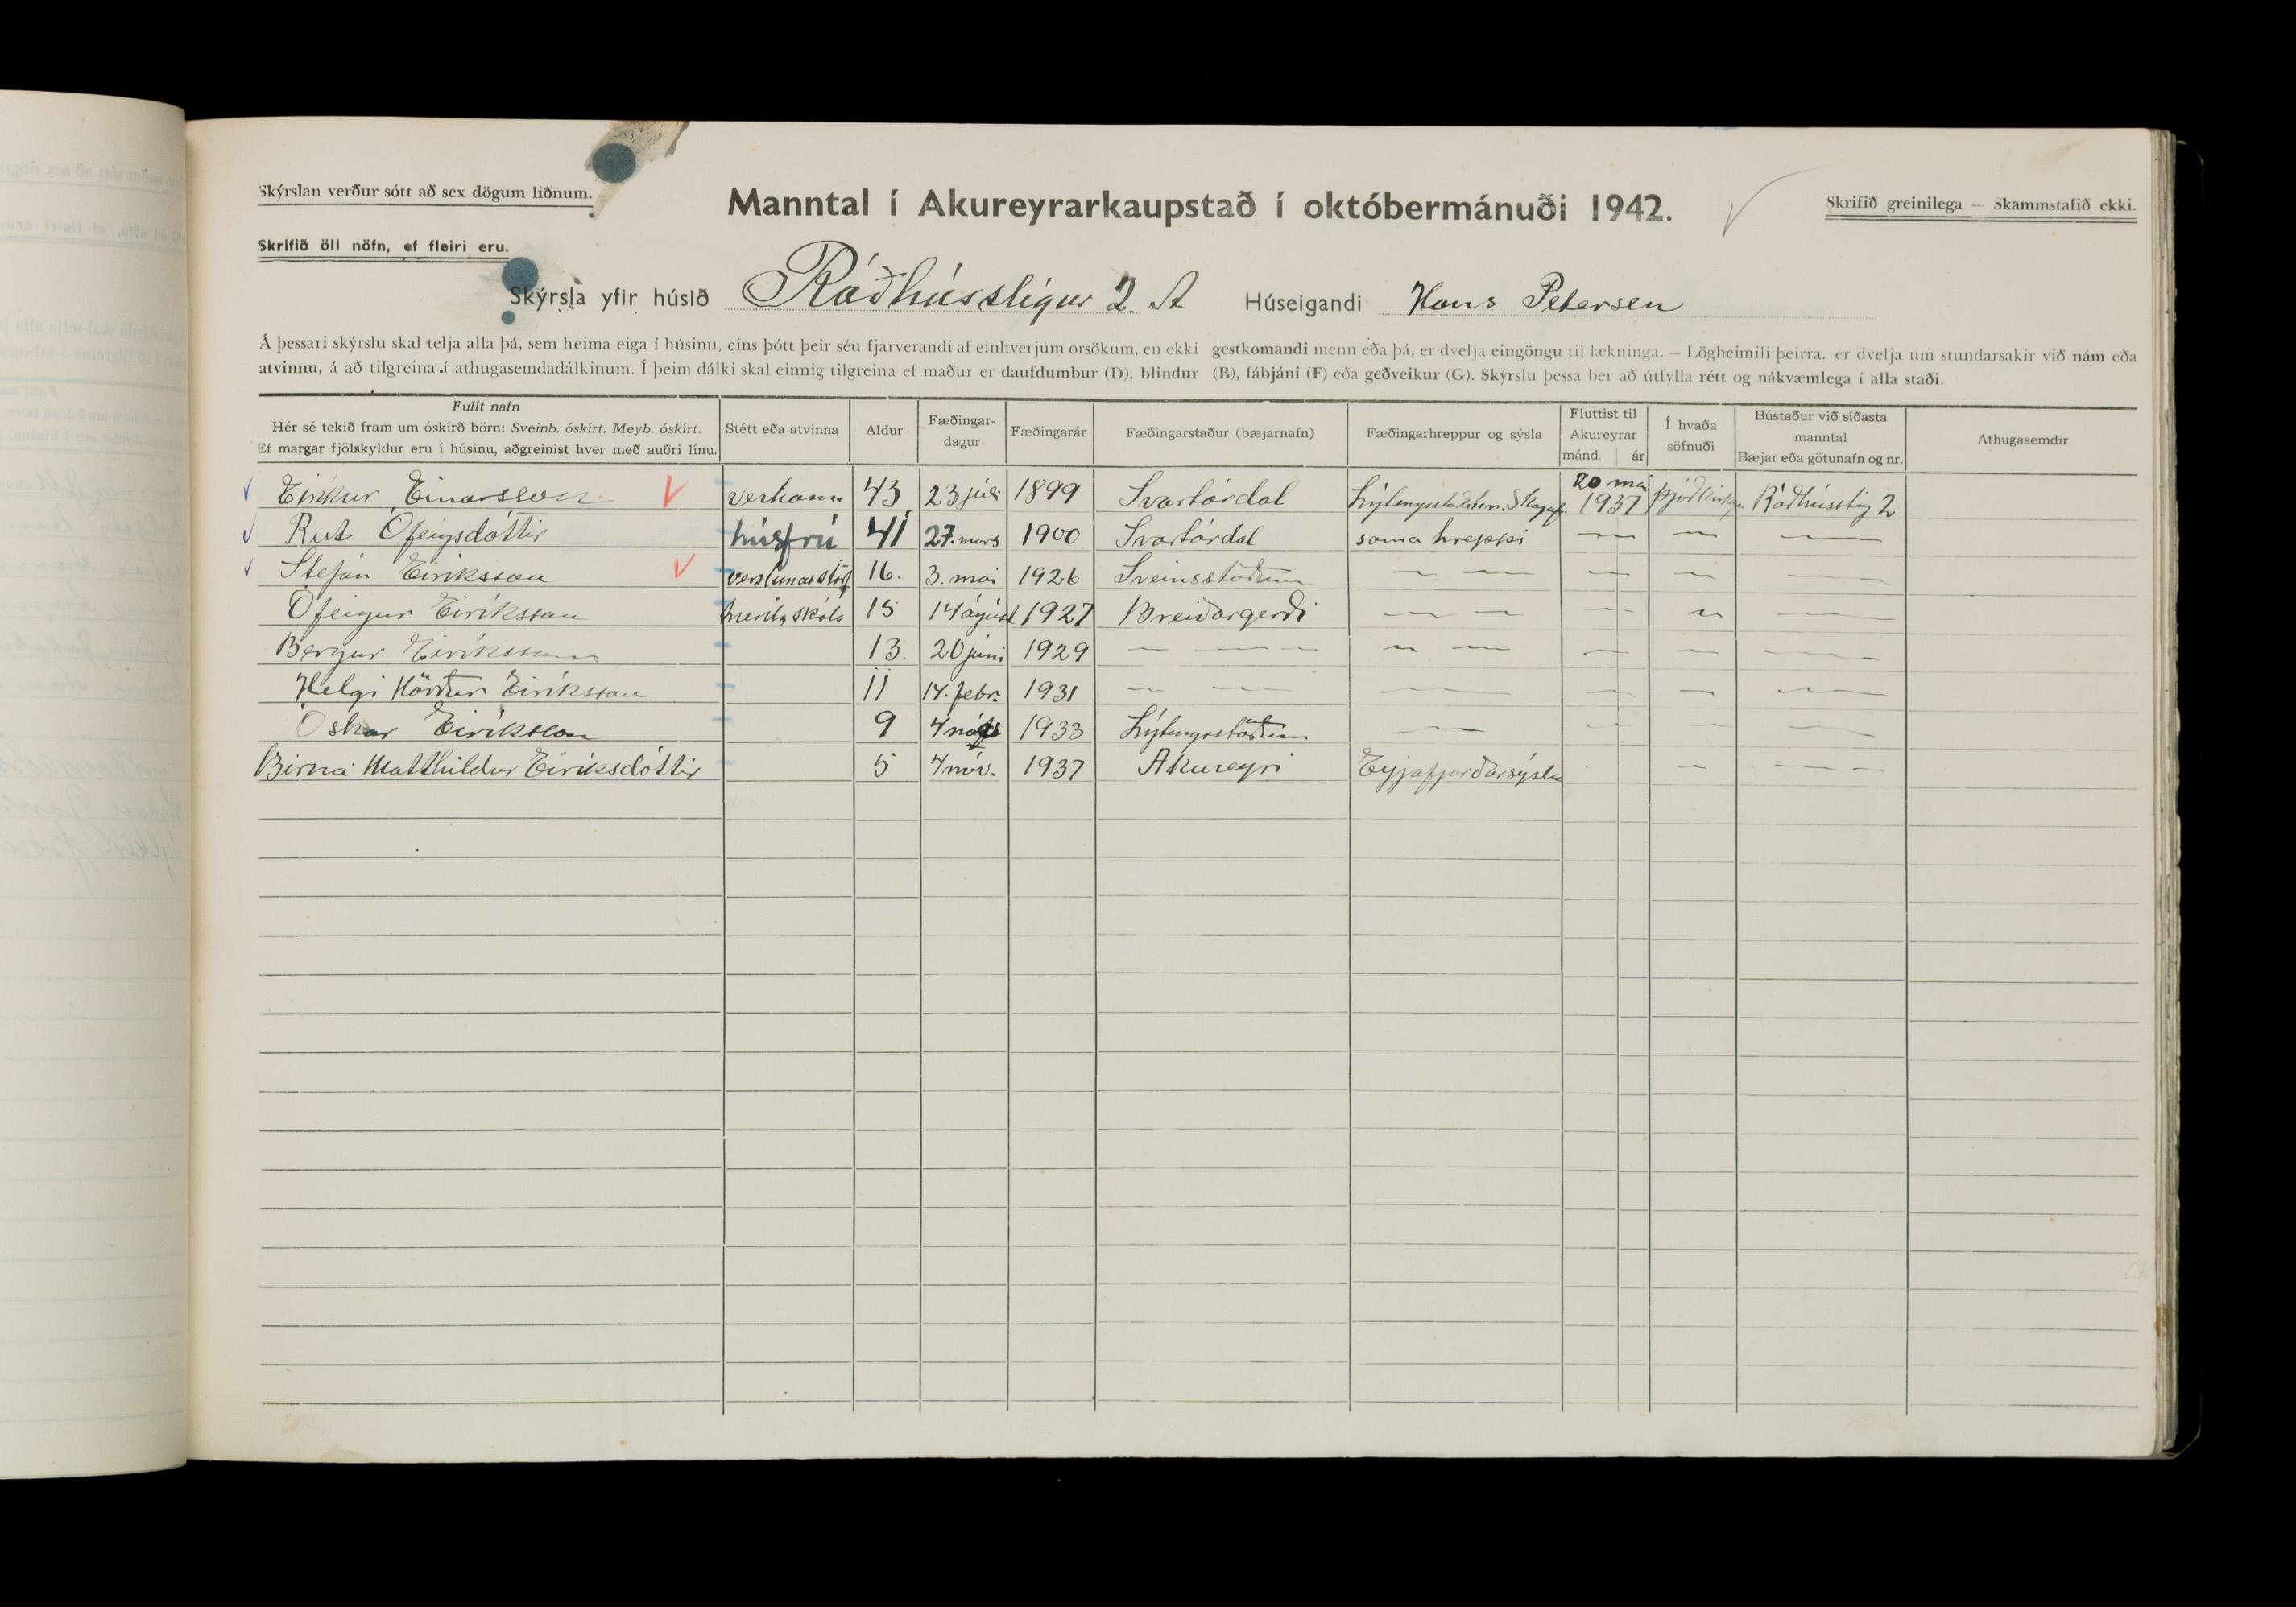 Skýrslan verður sótt að sex dögum liðnum.
Manntal í Akureyrarkaupstað í októbermánuði 1942.
Skrifið greinilega — Skammstafið ekki.
Skrifið öll nöfn, ef fleiri eru.
Skýrsla yfir húsið Ráðhússtígur 2. A Húseigandi Hans Petersen
Á þessari skýrslu skal telja alla þá, sem heima eiga í húsinu, eins þótt þeir séu fjarverandi af einhverjum orsökum, en ekki gestkomandi menn eða þá, er dvelja eingöngu til lækninga. — Lögheimili þeirra, er dvelja um stundarsakir við nám eða
atvinnu, á að tilgreina í athugasemdadálkinum. Í þeim dálki skal einnig tilgreina ef maður er daufdumbur (D), blindur (B), fábjáni (F) eða geðveikur (G). Skýrslu þessa ber að útfylla rétt og nákvæmlega í alla staði.
Fullt nafn
Hér sé tekið fram um óskírð börn: Sveinb. óskírt. Meyb. óskírt.
Ef margar fjölskyldur eru í húsinu, aðgreinist hver með auðri línu.
Stétt eða atvinna
Aldur
Fæðingar-
dagur
Fæðingarár
Fæðingarstaður (bæjarnafn)
Fæðingarhreppur og sýsla
Fluttist til
Akureyrar
mánd. ár
Í hvaða
söfnuði
Bústaður við síðasta
manntal
Bæjar eða götunafn og nr.
Athugasemdir
Eiríkur Einarsson verkam. 43 23 júlí 1899 Svartárdal Lýtingsstaðahr. Skagaf. 20 maí 1937 Ráðhússtíg 2
Rut Ófeigsdóttir húsfrú 41 27. mars 1900 Svartárdal sama hreppi — — —
Stefán Eiríksson verslunarstörf 16. 3. maí 1926 Sveinsstöðum — — — — —
Ófeigur Eiríksson 15 14 ágúst 1927 Breiðargerði — — — — —
Bergur Eiríksson 13. 20 júní 1929 — — — — — — — —
Helgi Hörður Eiríksson 11 14. febr. 1931 — — — — — — —
Óskar Eiríksson 9 4 1933 Lýtingsstöðum — — — —
Birna Matthildur Eiríksdóttir 5 4 nóv. 1937 Akureyri Eyjafjarðarsýslu — — —